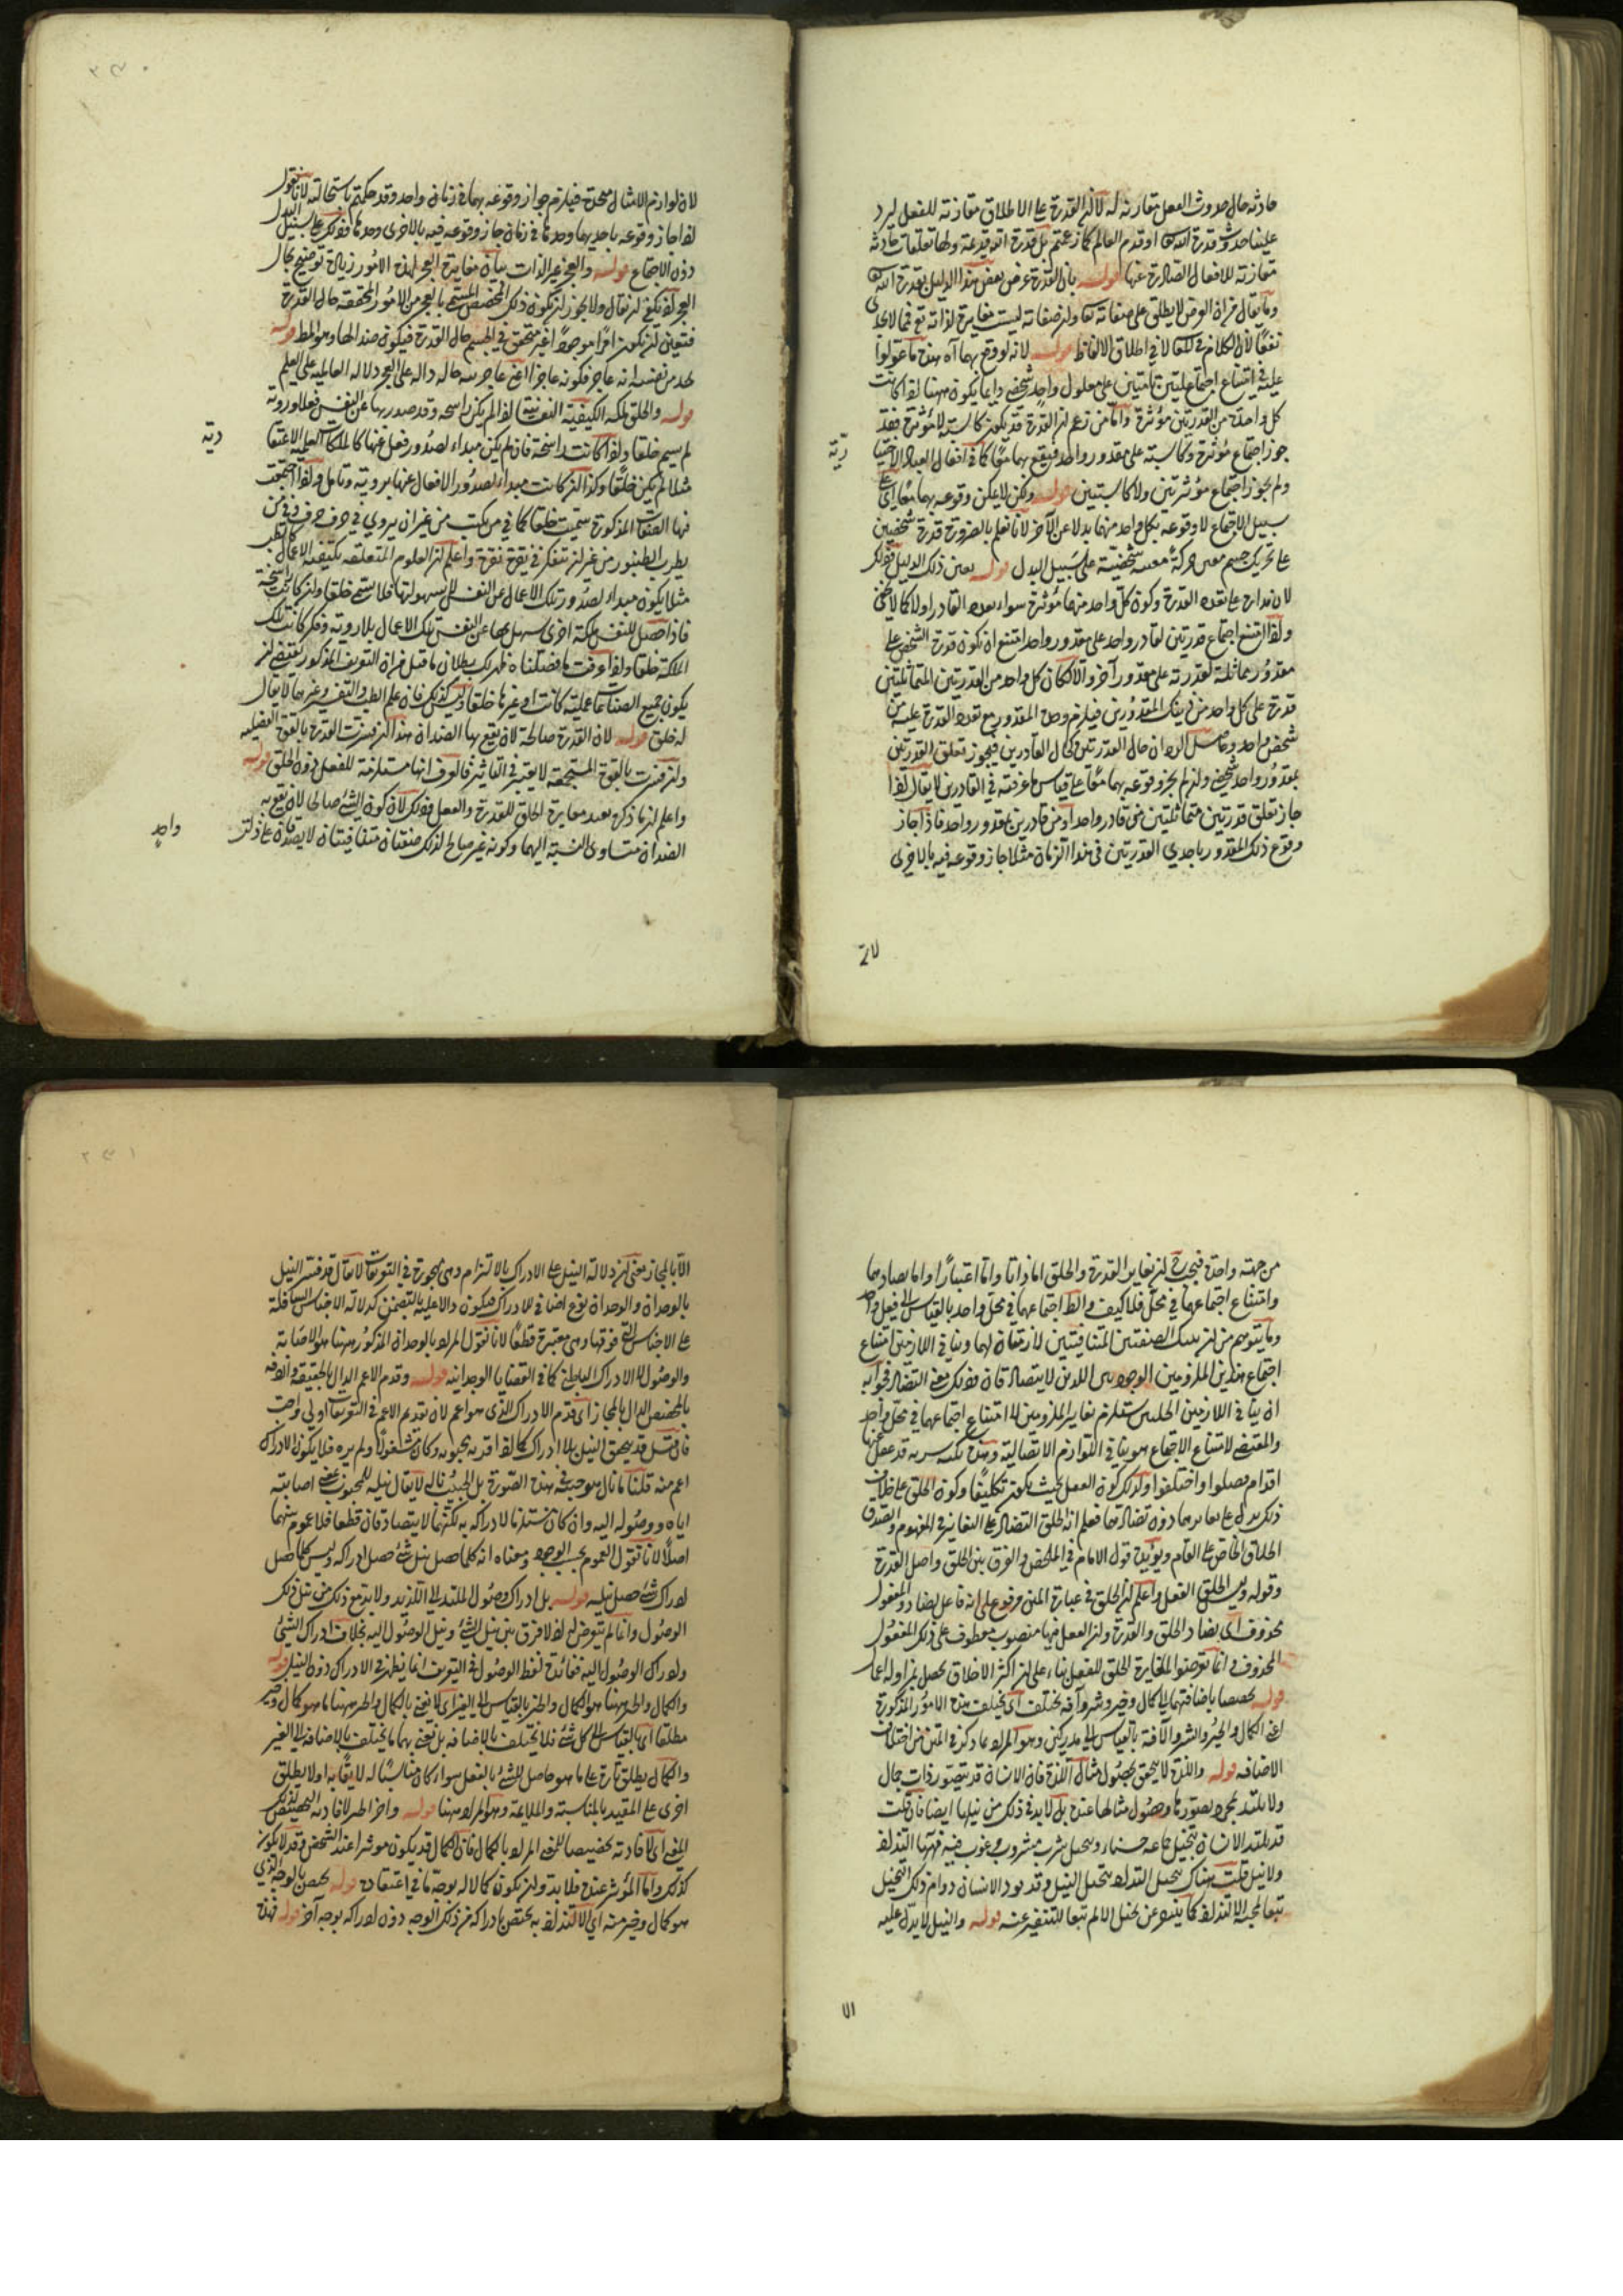 حادثة حال حدوث الفعل مقارنة له لا ان القدرة على الاطلاق مقارنة للفعل ليرد
علينا حدوث قدرة الله تعالى او قدم العالم كما زعمتم بل قدرة الله قديمة ولها تعلقات حادثة
مقارنة للافعال الصادرة عنها قوله بان القدرة عرض بعض هذا الدليل بقدرة الله
وما يقال من ان العرض لا يطلق على صفاته تعالى وان صفاته ليست مغايرة لذاته تع فمما لا يجدى
نفعا لان الكلام في المعنى لا في اطلاق الالفاظ قوله لانه لو وقع بهما آه هذه ما عولوا
عليه في امتناع اجتماع علتين تامتين على معلول واحد شخصي وانما يكون ههنا اذا كانت
كل واحدة من القدرتين مؤثرة واما من زعم ان القدرة قد يكون كاسبة لا مؤثرة فقد
جوز اجتماع مؤثرة وكاسبة على مقدور واحد فيقع بهما معا كما في افعال العباد الاختيا
ولم يجوز اجتماع مؤثرتين ولا كاسبتين قوله ولكن لا يمكن وقوعه بهما معا اى على
سبيل الاجتماع لا وقوعه بكل واحد منهما بدلا عن الآخر لانا نعلم بالضرورة قدرة شخصين
على تحريك جسم معين حركة معينة شخصية على سبيل البدل قوله بعين ذلك الدليل وذلك
لان مداره على تعدد القدرة وكون كل واحد منهما مؤثرة سواء تعدد القادر اولا كما لا يخفى
ولما امتنع اجتماع قدرتين لقادر واحد على مقدور واحد امتنع ان يكون قدرة الشخص على
مقدور مماثلة لقدرته على مقدور آخر والا لكان كل واحد من القدرتين المتماثلتين
قدرة على كل واحد من ذينك المقدورين فيلزم وحدة المقدور مع تعدد القدرة عليه من
شخص واحد وحاصل الرد ان حال القدرتين كحال القادرين فيجوز تعلق القدرتين
بمقدور واحد شخصي وان لم يجز وقوعه بهما معا على قياس ما عرفته في القادرين لا يقال اذا
جاز تعلق قدرتين متماثلتين من قادر واحد او من قادرين بمقدور واحد فاذا جاز
وقوع ذلك المقدور باحدي القدرتين في هذا الزمان مثلا جاز وقوعه فيه بالاخرى
رية
لان
لان لوازم الامثال متحدة فيلزم جواز وقوعه بهما في زمان واحد وقد حكمتم باستحالته لانا نقول
اذا جاز وقوعه باحديهما وحدها في زمان جاز وقوعه فيه بالاخرى وحدها وذلك على سبيل البدل
دون الاجتماع قوله والعجز غير الذات بيان مغايرة العجز لهذه الامور زيادة توضيح لحال
العجز اذ يكفي ان يقال ولا يجوز ان يكون ذلك المخصص المسمى بالعجز من الامور المتحققة حال القدرة
فتعين ان يكون امرا موجودا غير متحقق في الجسم حال القدرة فيكون ضدا لها وهو المط قوله
يجد من نفسه انه عاجز فكونه عاجزا اعني عاجزيته حالة دالة على العجز دلالة العالمية على العلم
قوله والخلق ملكة الكيفية النفسانية اذا لم يكن راسخة وقد صدر بها عن النفس فعل بلا روية
لم يسم خلقا واذا كانت راسخة فان لم يكن مبداء لصدور فعل عنها كالملكات العلمية الاعتقا
مثلا لم يكن خلقا وكذا ان كانت مبداء لصدور الافعال عنها بروية وتامل واذا اجتمعت
فيها الصفات المذكورة سميت خلقا كما في من يكتب من غير ان يروي في حرف حرف وفي من
يطرب الطنبور من غير ان يتفكر في نقرة نقرة واعلم ان العلوم المتعلقة بكيفية الاعمال كالطب
مثلا يكون مبداء لصدور تلك الاعمال عن النفس لا بسهولة فلا يسمى خلقا وان كانت راسخة
فاذا حصل للنفس ملكة اخرى يسهل بها عن النفس تلك الاعمال بلا روية وفكر كانت تلك
الملكة خلقا واذا عرفت ما فصلناه ظهر لك بطلان ما قيل من ان التعريف المذكور يقتضي ان
يكون جميع الصناعات عملية كانت او غيرها خلقا وليس كذلك فان علم الطب والتفسير وغيرهما لا يقال
له خلق قوله لان القدرة صالحة لان يقع بها الضدان هذا ان فسرت القدرة بالقوة العضلية
وان فسرت بالقوة المستجمعة لا يعتبر في التاثير فالفرق انها مستلزمة للفعل دون الخلق قوله
واعلم ان ما ذكره يفيد مغايرة الخلق للقدرة والفعل وذلك لان كون الشئ صالحا لان يقع به
الضدان متساوى النسبة اليهما وكونه غير صالح لذلك صفتان متنافيتان لا يصدقان على ذات
دية
واحد
من جهة واحدة فيجب ان تغاير القدرة والخلق اما ذاتا واما اعتبارا واما تضادهما
وامتناع اجتماعهما في محل فلا كيف والظ اجتماعهما في محل واحد بالقياس الى فعل واحد
وما يتوهم من ان تينك الصفتين المتنافيتين لازمتان لهما وتنافي اللازمين امتناع
اجتماع هذين الملزومين الوجوديين اللذين لا يتصادقان وذلك معنى التضاد فجوابه
ان تنافي اللازمين الحمليين يستلزم تغاير الملزومين لا امتناع اجتماعهما في محل واحد
والمقتضي لامتناع الاجتماع هو تنافي اللوازم الاتصالية وهذه نكتة سرية قد غفل عنها
اقوام فضلوا واضلوا ولذلك كون الفعل بحيث يكون تكليفا وكون الخلق على خلاف
ذلك يدل على تغايرهما دون تضادهما فعلم انه اطلق التضاد على التغاير في المفهوم والصدق
اطلاق الخاص على العام ويؤيده قول الامام في الملخص والفرق بين الخلق واصل القدرة
وقوله وبين الخلق والفعل واعلم ان الخلق في عبارة المتن مرفوع على انه فاعل يضاد والمفعول
محذوف اى يضاد الخلق والقدرة وان الفعل فيها منصوب معطوف على ذلك المفعول
المحذوف وانما تعرضوا لمغايرة الخلق للفعل بناء على ان اكثر الاخلاق يحصل بمزاولة اعمال
قوله تخصصا باضافتهما الى كمال وخير وشر وآفة تختلف اى يختلف هذه الامور المذكورة
اعني الكمال والخير والشر والآفة بالقياس الى مدركين وهو المراد بما ذكر في المتن من اختلاف
الاضافة قوله واللذة لا يتحقق بحصول مثال اللذة فان الانسان قد يتصور ذات جمال
ولا يلتذ بمجرد تصورها وحصول مثالها عنده بل لا بد في ذلك من نيلها ايضا فان قلت
قد يلتذ الانسان بتخيل جماعة حسناء وبتخيل شرب مشروب مرغوب فيه فههنا التذاذ
ولا نيل قلت هناك تخيل التذاذ بتخيل النيل وقد يود الانسان دوام ذلك التخيل
تبعا لمحبة الالتذاذ كما يتنفر عن تخيل الالم تبعا للتنفر عنه قوله والنيل لا يدل عليه
الا
الا بالمجاز يعني ان دلالة النيل على الادراك بالالتزام وهي مهجورة في التعريفات لا يقال قد فسر النيل
بالوجدان والوجدان نوع اضافي للادراك فيكون دالا عليه بالتضمن كدلالة الاجناس السافلة
على الاجناس التي فوقها وهي معتبرة قطعا لانا نقول المراد بالوجدان المذكور ههنا هو الاصابة
والوصول لا الادراك الباطني كما في القضايا الوجدانية قوله وقدم الاعم الدال بالحقيقة واردفه
بالمخصص الدال بالمجاز اى قدم الادراك الذى هو اعم لان تقديم الاعم في التعريفات اولى وواجب
فان قيل قد يتحقق النيل بلا ادراك كما اذا قرب محبوبه وكان مشغولا ولم يره فلا يكون الادراك
اعم منه قلنا ما نال هو حبيبه في هذه الصورة بل الحبيب ناله لا يقال نيله للمحبوب يعني اصابته
اياه ووصوله اليه وان كان مستلزما لادراكه به لكنهما لا يتصادقان قطعا فلا عموم بينهما
اصلا لانا نقول العموم بحسب الوجود ومعناه انه كلما حصل نيل شئ حصل ادراكه وليس كلما حصل
ادراك شئ حصل نيله قوله بل ادراك وصول الملتذ الى اللذيذ ولا بد مع ذلك من نيل ذلك
الوصول وانما لم يتعرض له اذ لا فرق بين نيل الشئ ونيل الوصول اليه بخلاف ادراك الشئ
وادراك الوصول اليه ففائدة لفظ الوصول في التعريف انما يظهر في الادراك دون النيل قوله
والكمال والخير ههنا هو الكمال والخير بالقياس الى الغير اى لا نعني بالكمال والخير ههنا ما هو كمال وخير
مطلقا اى بالقياس الى كل شئ فلا تختلف بالاضافة بل نعني بهما ما يختلف بالاضافة الى الغير
والكمال يطلق تارة على ما هو حاصل للشئ بالفعل سواء كان مناسبا له لايقا به او لا ويطلق
اخرى على المقيد بالمناسبة والملايمة وهو المراد ههنا قوله واخر الخير لافادته التخصيص لذلك
المعنى اى لافادته تخصيصا للمعنى المراد بالكمال فان الكمال قد يكون موثرا عند الشخص وقد لا يكون
كذلك واما المؤثر عنده فلا بد وان يكون كمالا له بوجه ما في اعتقاده قوله يختص بالوجه الذي
هو كمال وخير منه اى الالتذاذ به يختص بادراكه من ذلك الوجه دون ادراكه بوجه آخر قوله فهذه